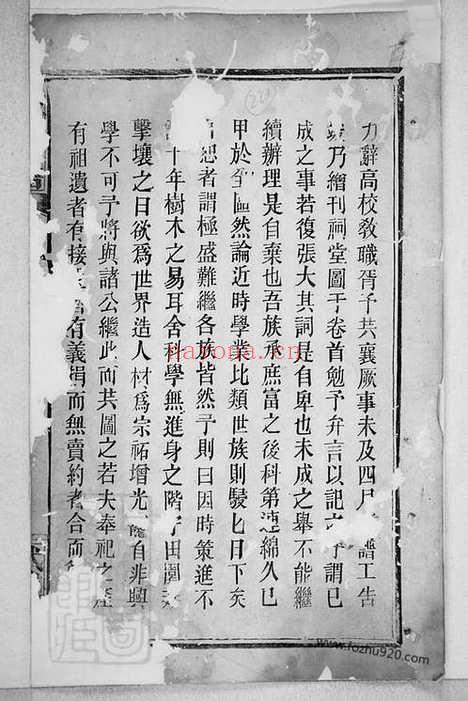 力辭高校敎職胥予共襄厥事未及四月譜工告
乃繪刊祠堂圖于卷首勉予弁言以記之予謂已
成之事若復張大其詞是自卑也未成之舉不能繼
續辦理是自棄也吾族承庶富之後科第連綿久已
甲於全區然論近時學業比類世族則駸匕日下矣
恕者謂極盛難繼各族皆然予則曰因時策進不
十年樹木之易耳舍科學無進身之階予田園
擊壤之日欲爲世界造人材爲宗祐增光寵自非興
學不可予將與諸公繼此而共圖之若夫奉祀之
有祖遺者有接有義捐而無賣約者合而
narona.cn
www.fozhu920.com